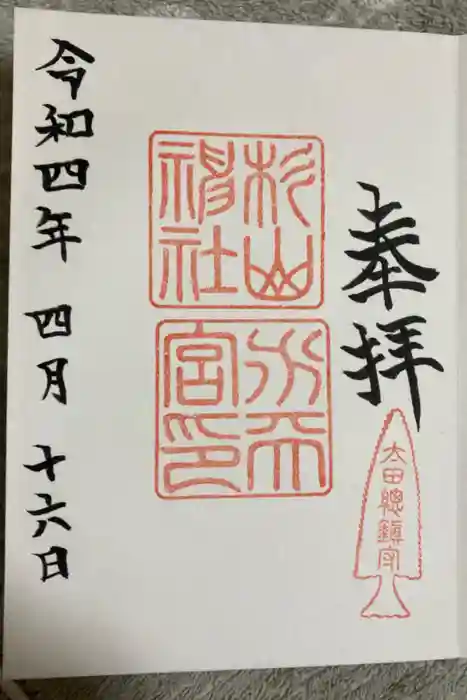 奉拝
太田總鎮守
杉山
神社
水天
宮印
令和四年 四月 十六日